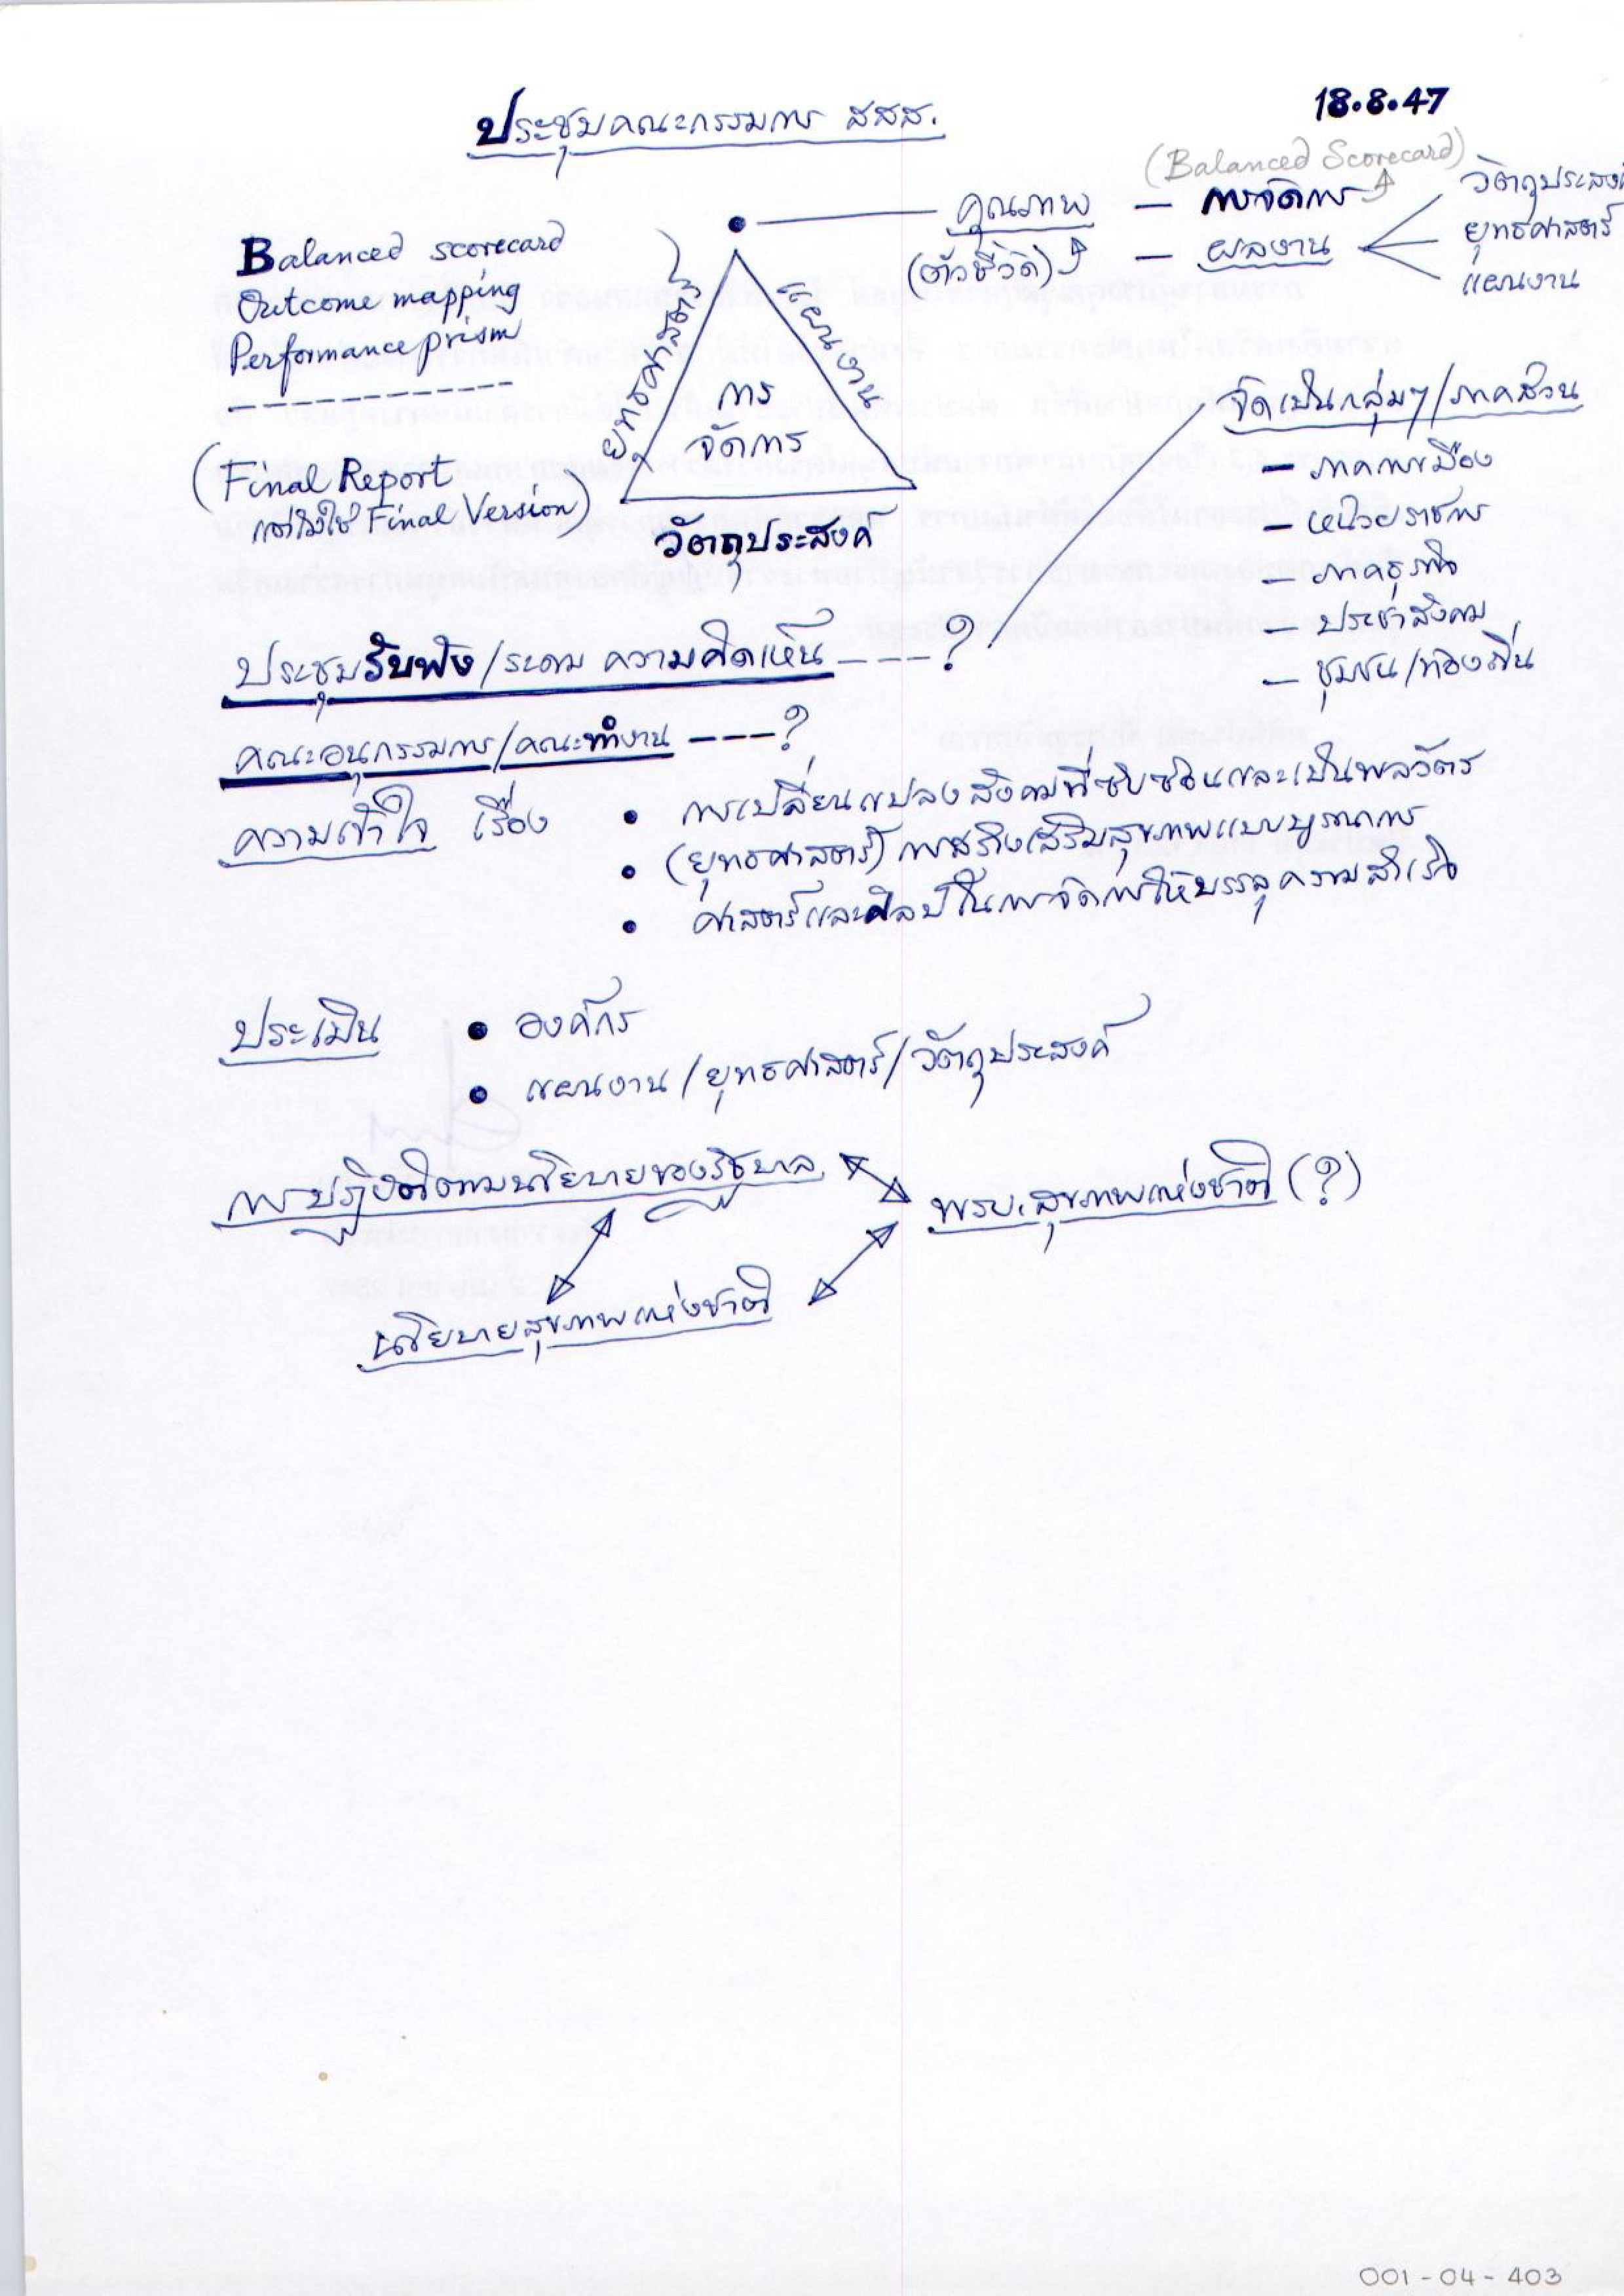 18.8.47
ประชุมคณะกรรมการ สสส.
(Balanced Scorecard)
คุณภาพ — การจัดการ
(ตัวชี้วัด) — ผลงาน
วัตถุประสงค์
ยุทธศาสตร์
แผนงาน
Balanced scorecard
Outcome mapping
Performance prism
(Final Report
แต่ไม่ใช่ Final Version)
ยุทธศาสตร์
แผนงาน
การ
จัดการ
วัตถุประสงค์
จัดเป็นกลุ่มๆ/ภาคส่วน
— ภาคการเมือง
— หน่วยราชการ
— ภาคธุรกิจ
— ประชาสังคม
— ชุมชน/ท้องถิ่น
ประชุมรับฟัง/ระดม ความคิดเห็น ----?
คณะอนุกรรมการ/คณะทำงาน ---?
ความเข้าใจ เรื่อง • การเปลี่ยนแปลงสังคมที่ซับซ้อนและเป็นพลวัตร
• (ยุทธศาสตร์) การสร้างเสริมสุขภาพแบบบูรณาการ
• ศาสตร์และศิลป์ในการจัดการให้บรรลุความสำเร็จ
ประเมิน • องค์กร
• แผนงาน/ยุทธศาสตร์/วัตถุประสงค์
การปฏิบัติตามนโยบายของรัฐบาล
พรบ.สุขภาพแห่งชาติ (?)
นโยบายสุขภาพแห่งชาติ
001-04-403